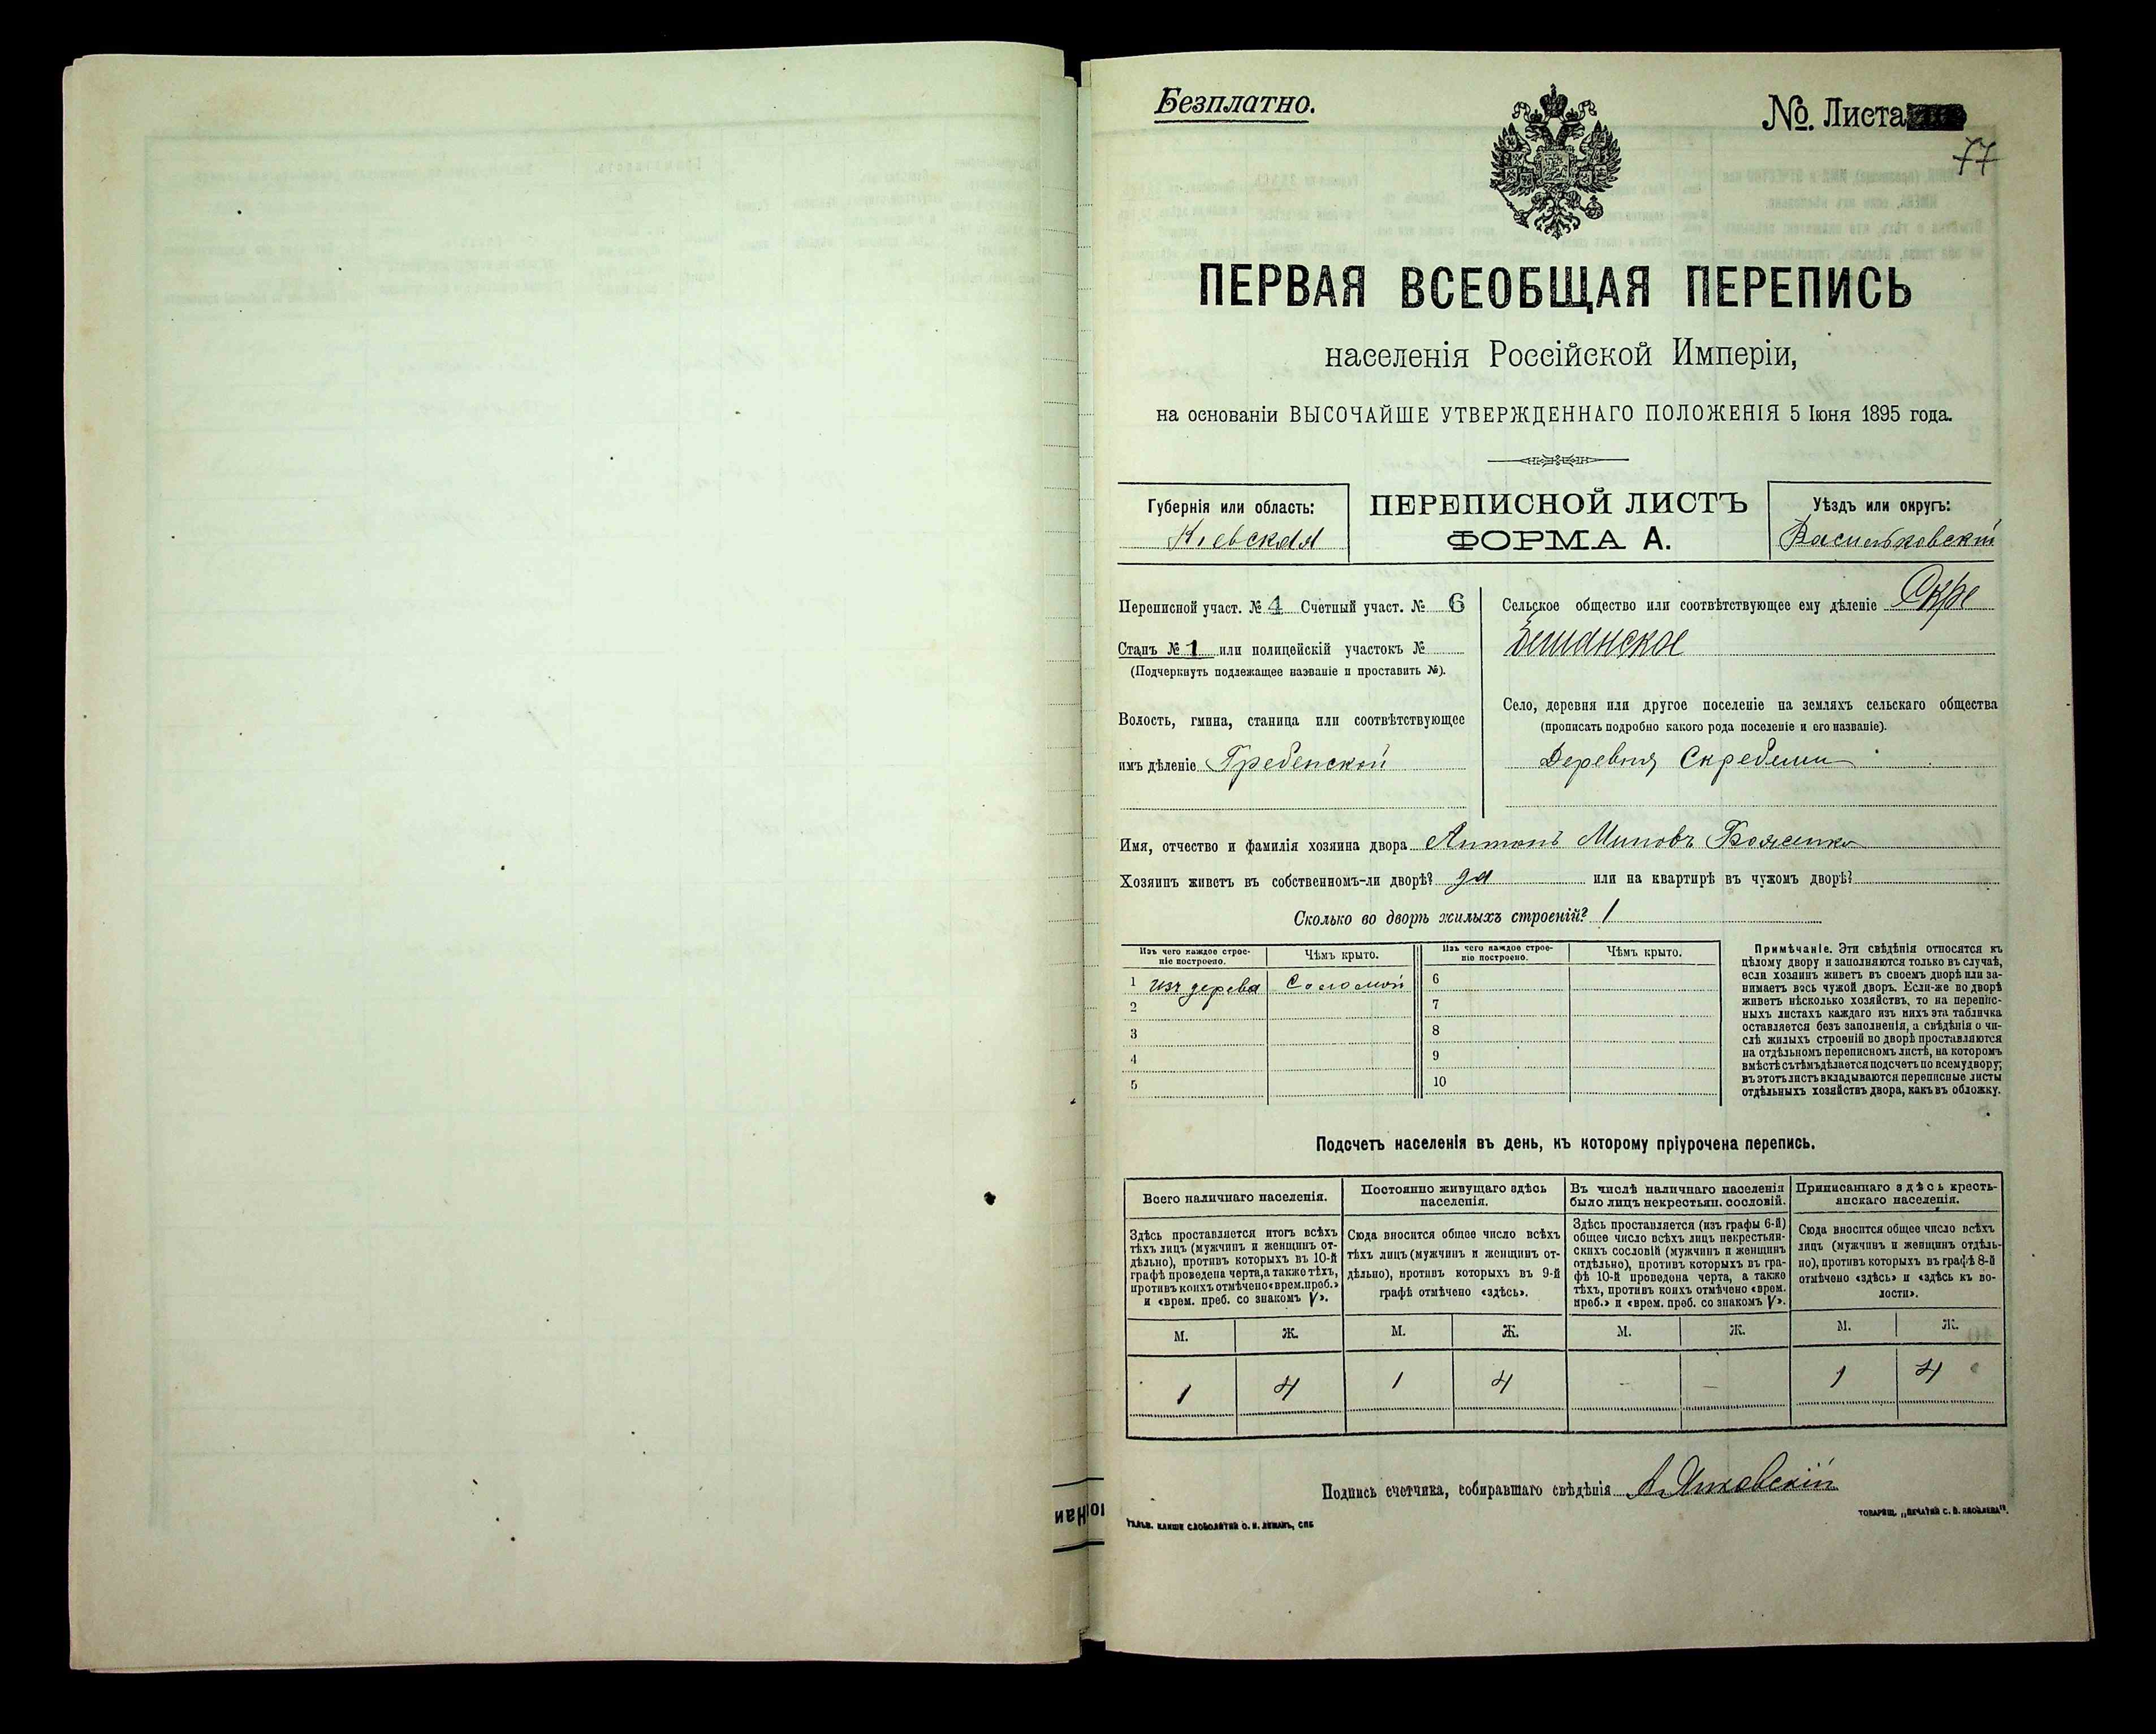 Безплатно.
№. Листа
77
ПЕРВАЯ ВСЕОБЩАЯ ПЕРЕПИСЬ
населенія Россійской Имперіи,
на основаніи ВЫСОЧАЙШЕ УТВЕРЖДЕННАГО ПОЛОЖЕНІЯ 5 Іюня 1895 года.
Губернія или область:
Кіевская
ПЕРЕПИСНОЙ ЛИСТЪ
ФОРМА А.
Уѣздъ или округъ:
Васильковскій
Переписной участ. № 4 Счетный участ. № 6
Станъ № 1 или полицейскій участокъ №
(Подчеркнуть подлежащее названіе и проставить №).
Волость, гмина, станица или соотвѣтствующее
имъ дѣленіе Гребенской
Сельское общество или соотвѣтствующее ему дѣленіе Скре
бешанское
Село, деревня или другое поселеніе на земляхъ сельскаго общества
(прописать подробно какого рода поселеніе и его названіе).
Деревня Скребеши
Имя, отчество и фамилія хозяина двора Антонъ
Хозяинъ живетъ въ собственномъ-ли дворѣ? да или на квартирѣ въ чужомъ дворѣ?
Сколько во дворѣ жилыхъ строеній? 1
Изъ чего каждое строе-
ніе построено.
Чѣмъ крыто.
Изъ чего каждое строе-
ніе построено.
Чѣмъ крыто.
1 изъ дерева Соломой
2
3
4
5
6
7
8
9
10
Примѣчаніе. Эти свѣдѣнія относятся къ
цѣлому двору и заполняются только въ случаѣ,
если хозяинъ живетъ въ своемъ дворѣ или за-
нимаетъ весь чужой дворъ. Если-же во дворѣ
живетъ нѣсколько хозяйствъ, то на перепис-
ныхъ листахъ каждаго изъ нихъ эта табличка
оставляется безъ заполненія, а свѣдѣнія о чи-
слѣ жилыхъ строеній во дворѣ проставляются
на отдѣльномъ переписномъ листѣ, на которомъ
вмѣстѣ съ тѣмъ дѣлается подсчетъ по всему двору;
въ этотъ листъ вкладываются переписные листы
отдѣльныхъ хозяйствъ двора, какъ въ обложку.
Подсчетъ населенія въ день, къ которому пріурочена перепись.
Всего наличнаго населенія.
Здѣсь проставляется итогъ всѣхъ
тѣхъ лицъ (мужчинъ и женщинъ от-
дѣльно), противъ которыхъ въ 10-й
графѣ проведена черта, а также тѣхъ,
противъ коихъ отмѣчено «врем. преб.»
и «врем. преб. со знакомъ V».
М. Ж.
1 4
Постоянно живущаго здѣсь
населенія.
Сюда вносится общее число всѣхъ
тѣхъ лицъ (мужчинъ и женщинъ от-
дѣльно), противъ которыхъ въ 9-й
графѣ отмѣчено «здѣсь».
М. Ж.
1 4
Въ числѣ наличнаго населенія
было лицъ некрестьян. сословій.
Здѣсь проставляется (изъ графы 6-й)
общее число всѣхъ лицъ некрестьян-
скихъ сословій (мужчинъ и женщинъ
отдѣльно), противъ которыхъ въ гра-
фѣ 10-й проведена черта, а также
тѣхъ, противъ коихъ отмѣчено «врем.
преб.» и «врем. преб. со знакомъ V».
М. Ж.
- -
Приписаннаго здѣсь кресть-
янскаго населенія.
Сюда вносится общее число всѣхъ
лицъ (мужчинъ и женщинъ отдѣль-
но), противъ которыхъ въ графѣ 8-й
отмѣчено «здѣсь» и «здѣсь къ во-
лости».
М. Ж.
1 4
Подпись счетчика, собиравшаго свѣдѣнія
ТОВАРИЩ. „ПЕЧАТНИ С. П. ЯКОВЛЕВА".